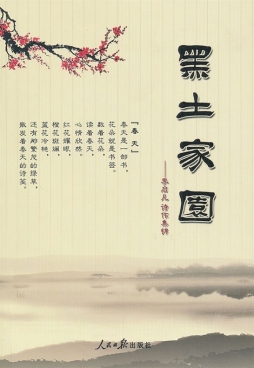 黑土家園
——诗作集锦
「春天」
春天是一部书，
花朵就是书签。
数着花朵，
读着春天，
心情欣
红花耀眼，
橙花斑斓，
蓝花冷艳，
还有那繁茂的绿草，
散发着春天的诗笺。
人民日报出版社